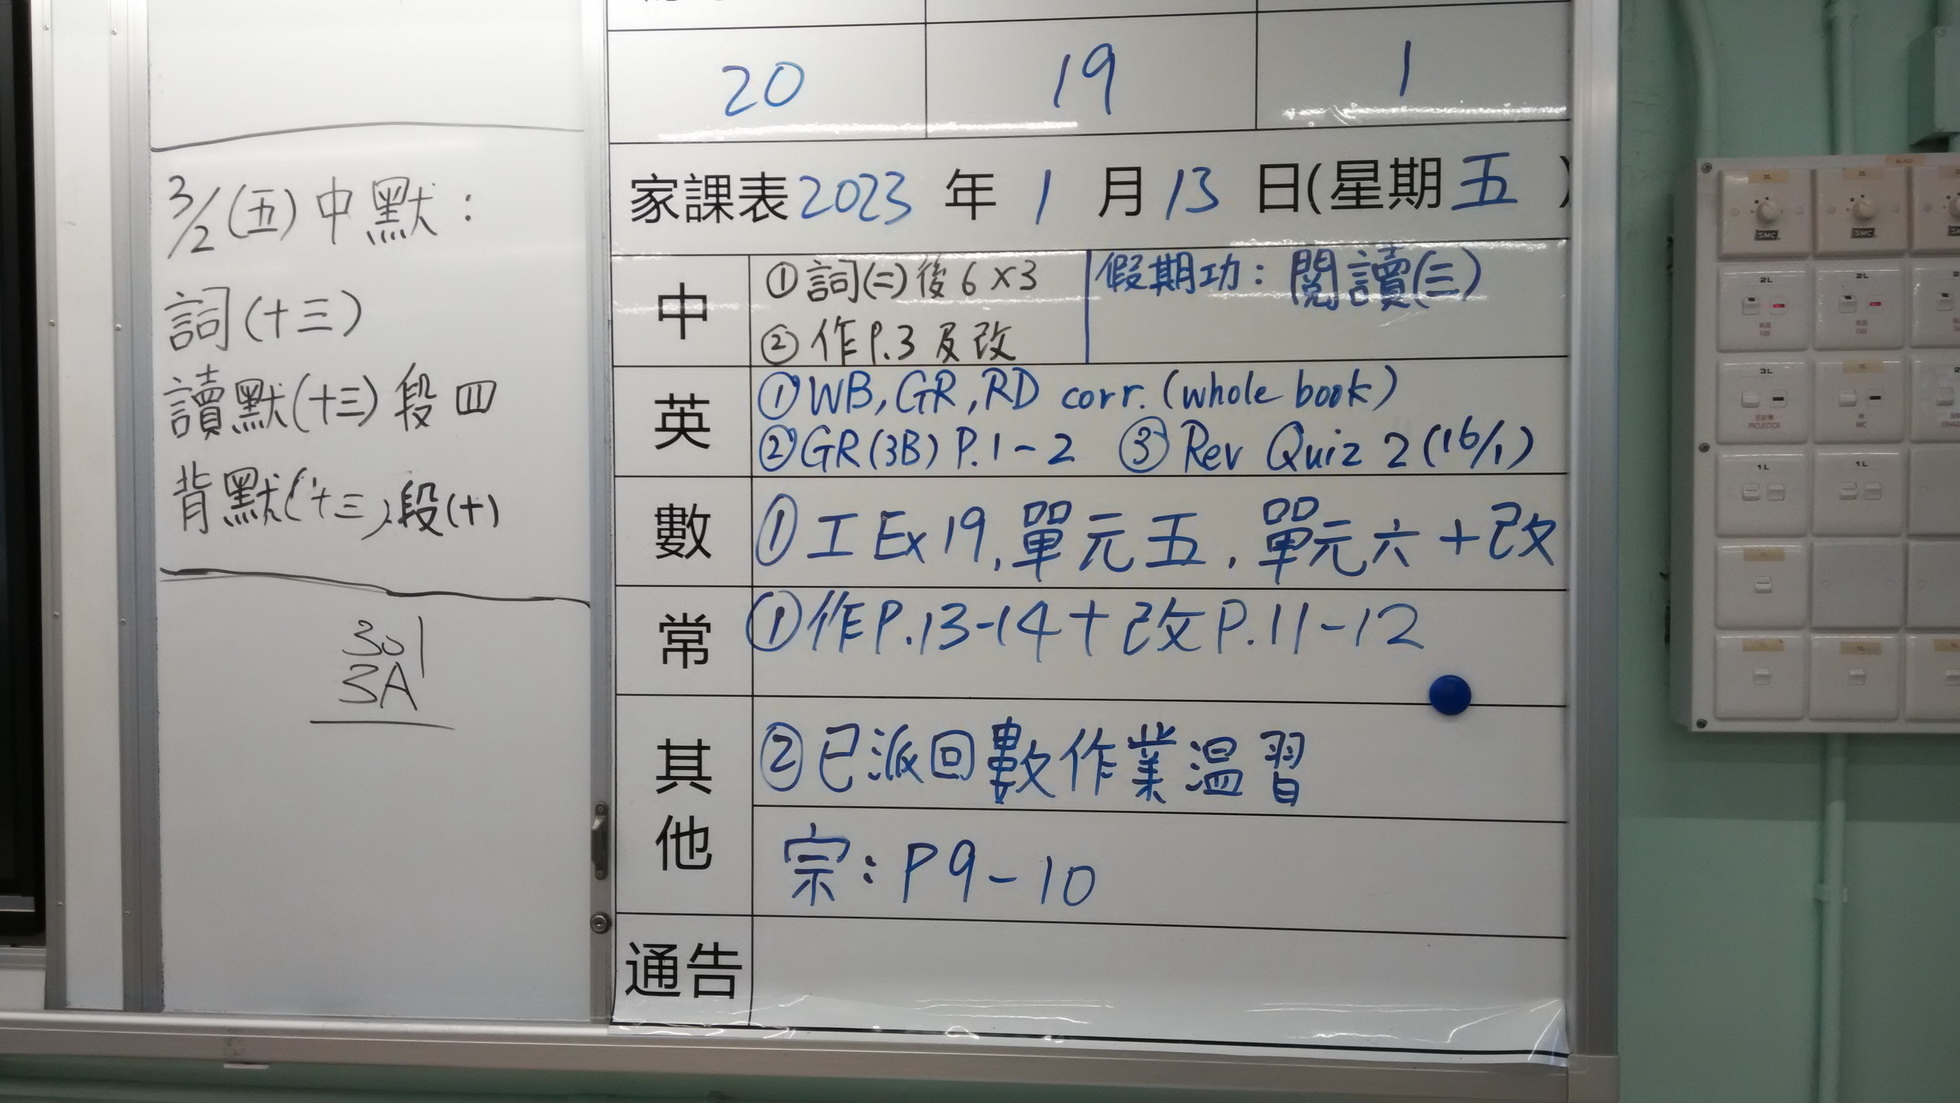 3/2(五)中默:
詞(十三)
讀默(十三)段四
背默(十三)段(十)
301
3A
20 19 1
家課表2023年1月13日(星期五)
中
①詞(二)後6×3
②作P.3及改
假期功:閱讀(三)
英
①WB,GR,RD corr.(whole book)
②GR(3B) P.1-2 ③Rev Quiz 2(16/1)
數
①工Ex19,單元五,單元六+改
常
①作P.13-14+改P.11-12
其他
②已派回數作業溫習
宗:P9-10
通告